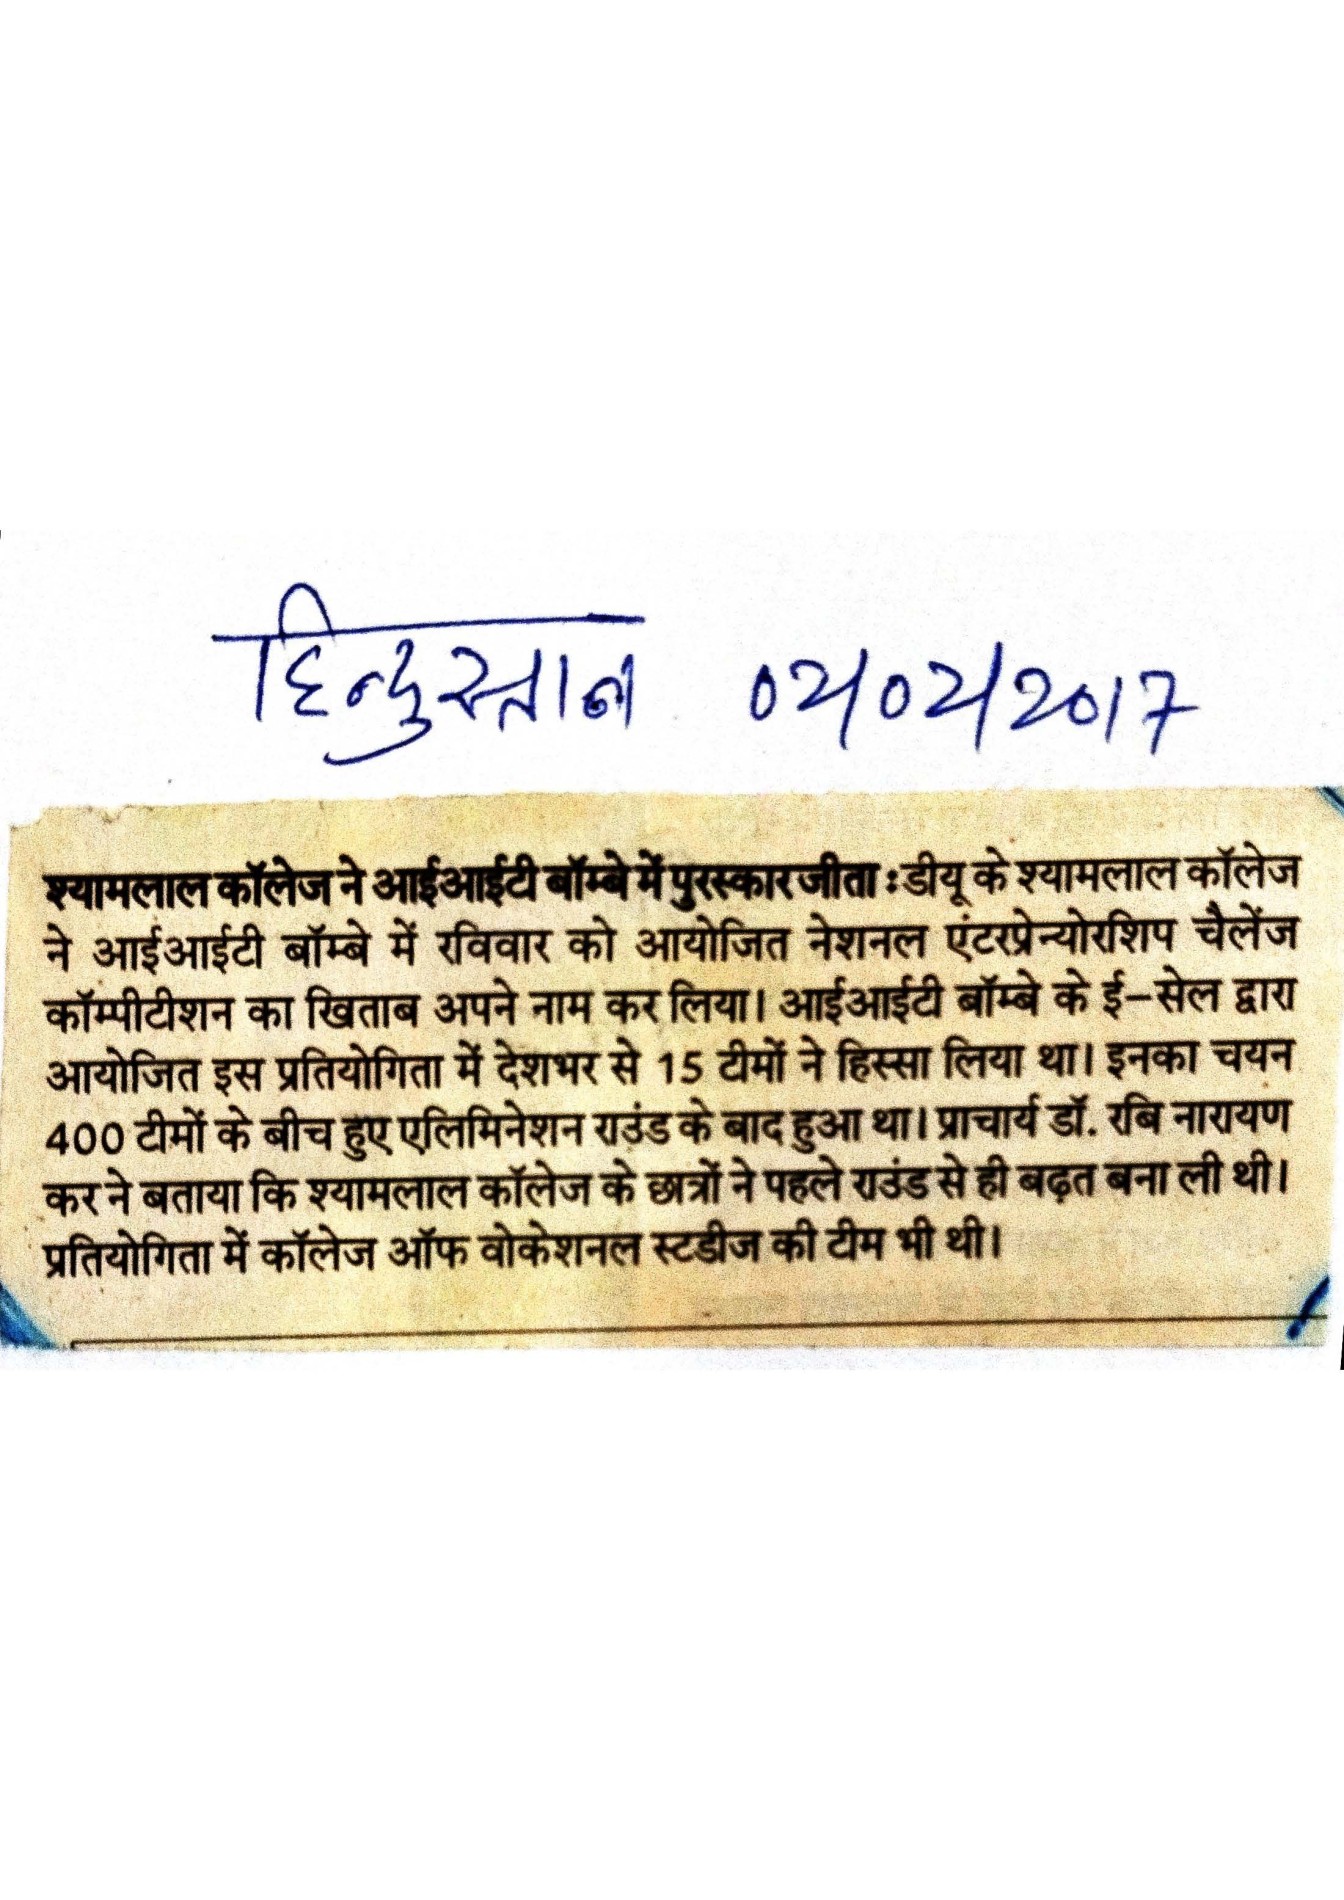 हिन्दुस्तान 02/02/2017
श्यामलाल कॉलेज ने आईआईटी बॉम्बे में पुरस्कार जीता : डीयू के श्यामलाल कॉलेज
ने आईआईटी बॉम्बे में रविवार को आयोजित नेशनल एंटरप्रेन्योरशिप चैलेंज
कॉम्पीटीशन का खिताब अपने नाम कर लिया। आईआईटी बॉम्बे के ई–सेल द्वारा
आयोजित इस प्रतियोगिता में देशभर से 15 टीमों ने हिस्सा लिया था। इनका चयन
400 टीमों के बीच हुए एलिमिनेशन राउंड के बाद हुआ था। प्राचार्य डॉ. रबि नारायण
कर ने बताया कि श्यामलाल कॉलेज के छात्रों ने पहले राउंड से ही बढ़त बना ली थी।
प्रतियोगिता में कॉलेज ऑफ वोकेशनल स्टडीज की टीम भी थी।